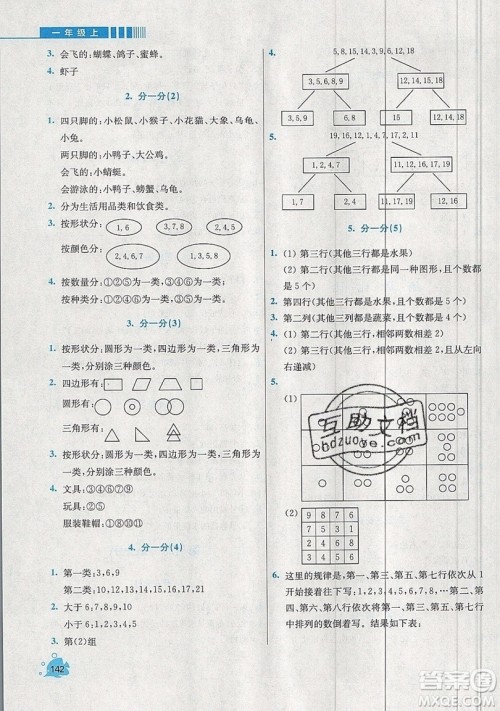 一年级上
3. 会飞的:蝴蝶、鸽子、蜜蜂。
4. 虾子
2. 分一分(2)
1. 四只脚的:小松鼠、小猴子、小花猫、大象、乌龟、
小兔。
两只脚的:小鸭子、大公鸡。
会飞的:小蜻蜓。
会游泳的:小鸭子、螃蟹、乌龟。
2. 分为生活用品类和饮食类。
3. 按形状分: 1,6 2,3,4,5,7
按颜色分: 2,4,6,7 1,3,5
4. 按数量分:①②⑤为一类,③④⑥为一类。
按种类分:①②⑥为一类,③④⑤为一类。
3. 分一分(3)
1. 按形状分:圆形为一类,四边形为一类,三角形为
一类,分别涂三种颜色。
2. 四边形有:
圆形有:
三角形有:
3. 按形状分:圆形为一类,四边形为一类,三角形为
一类,分别涂三种颜色。
4. 文具:①④⑦
玩具:②⑤⑥
服装鞋帽:①⑧⑨⑩⑪
4. 分一分(4)
1. 第一类:3,6,9
第二类:10,12,13,14,15,16,17,18,20,21
2. 大于 6:7,8,9,10,12
小于 6:1,2,3,4,5
3. 第(2)组
142
4. 5,8,15,9,3,6,12,14,11,13,19,18
3,5,6,8,9 11,12,13,14,15,18,19
3,5,9 6,8 12,14,18 11,13,15,19
5. 19,16,12,1,4,2,7,8,14,17,18
1,2,4,7,8 12,14,16,17,18,19
1,7 2,4,8 12,14,16,18 17,19
5. 分一分(5)
1. (1) 第三行(其他三行都是水果)
(2) 第三行(其他三行都是同一种图形,且个数都
是 5 个)
2. 第四行(其他三行是水果,且个数都是 5 个)
3. 第二列(其他三列都是蔬菜,且个数都是 5 个)
4. (1) 第二行(其他三行,相邻两数相差 2)
(2) 第一行(其他三行,相邻两数相差 2,且从左向
右递减)
5.
(1)
互助文档
hdzuoye.com
(2)
1 2 3 4
8 7 6 5
1 3 5 7
8 6 4 2
6. 这里的规律是,第一、第三、第五、第七行依次从 1
开始接着往下写:1,2,3,4,5,6,7,8,9,…。第二、
第四、第六行依次是将第一、第三、第五、第七行
中排列的数倒着写。
作业帮
MXQE.COM